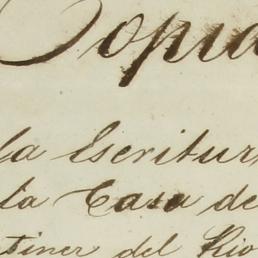 Copia
la Escritur
la Casa de
tiner del Rio